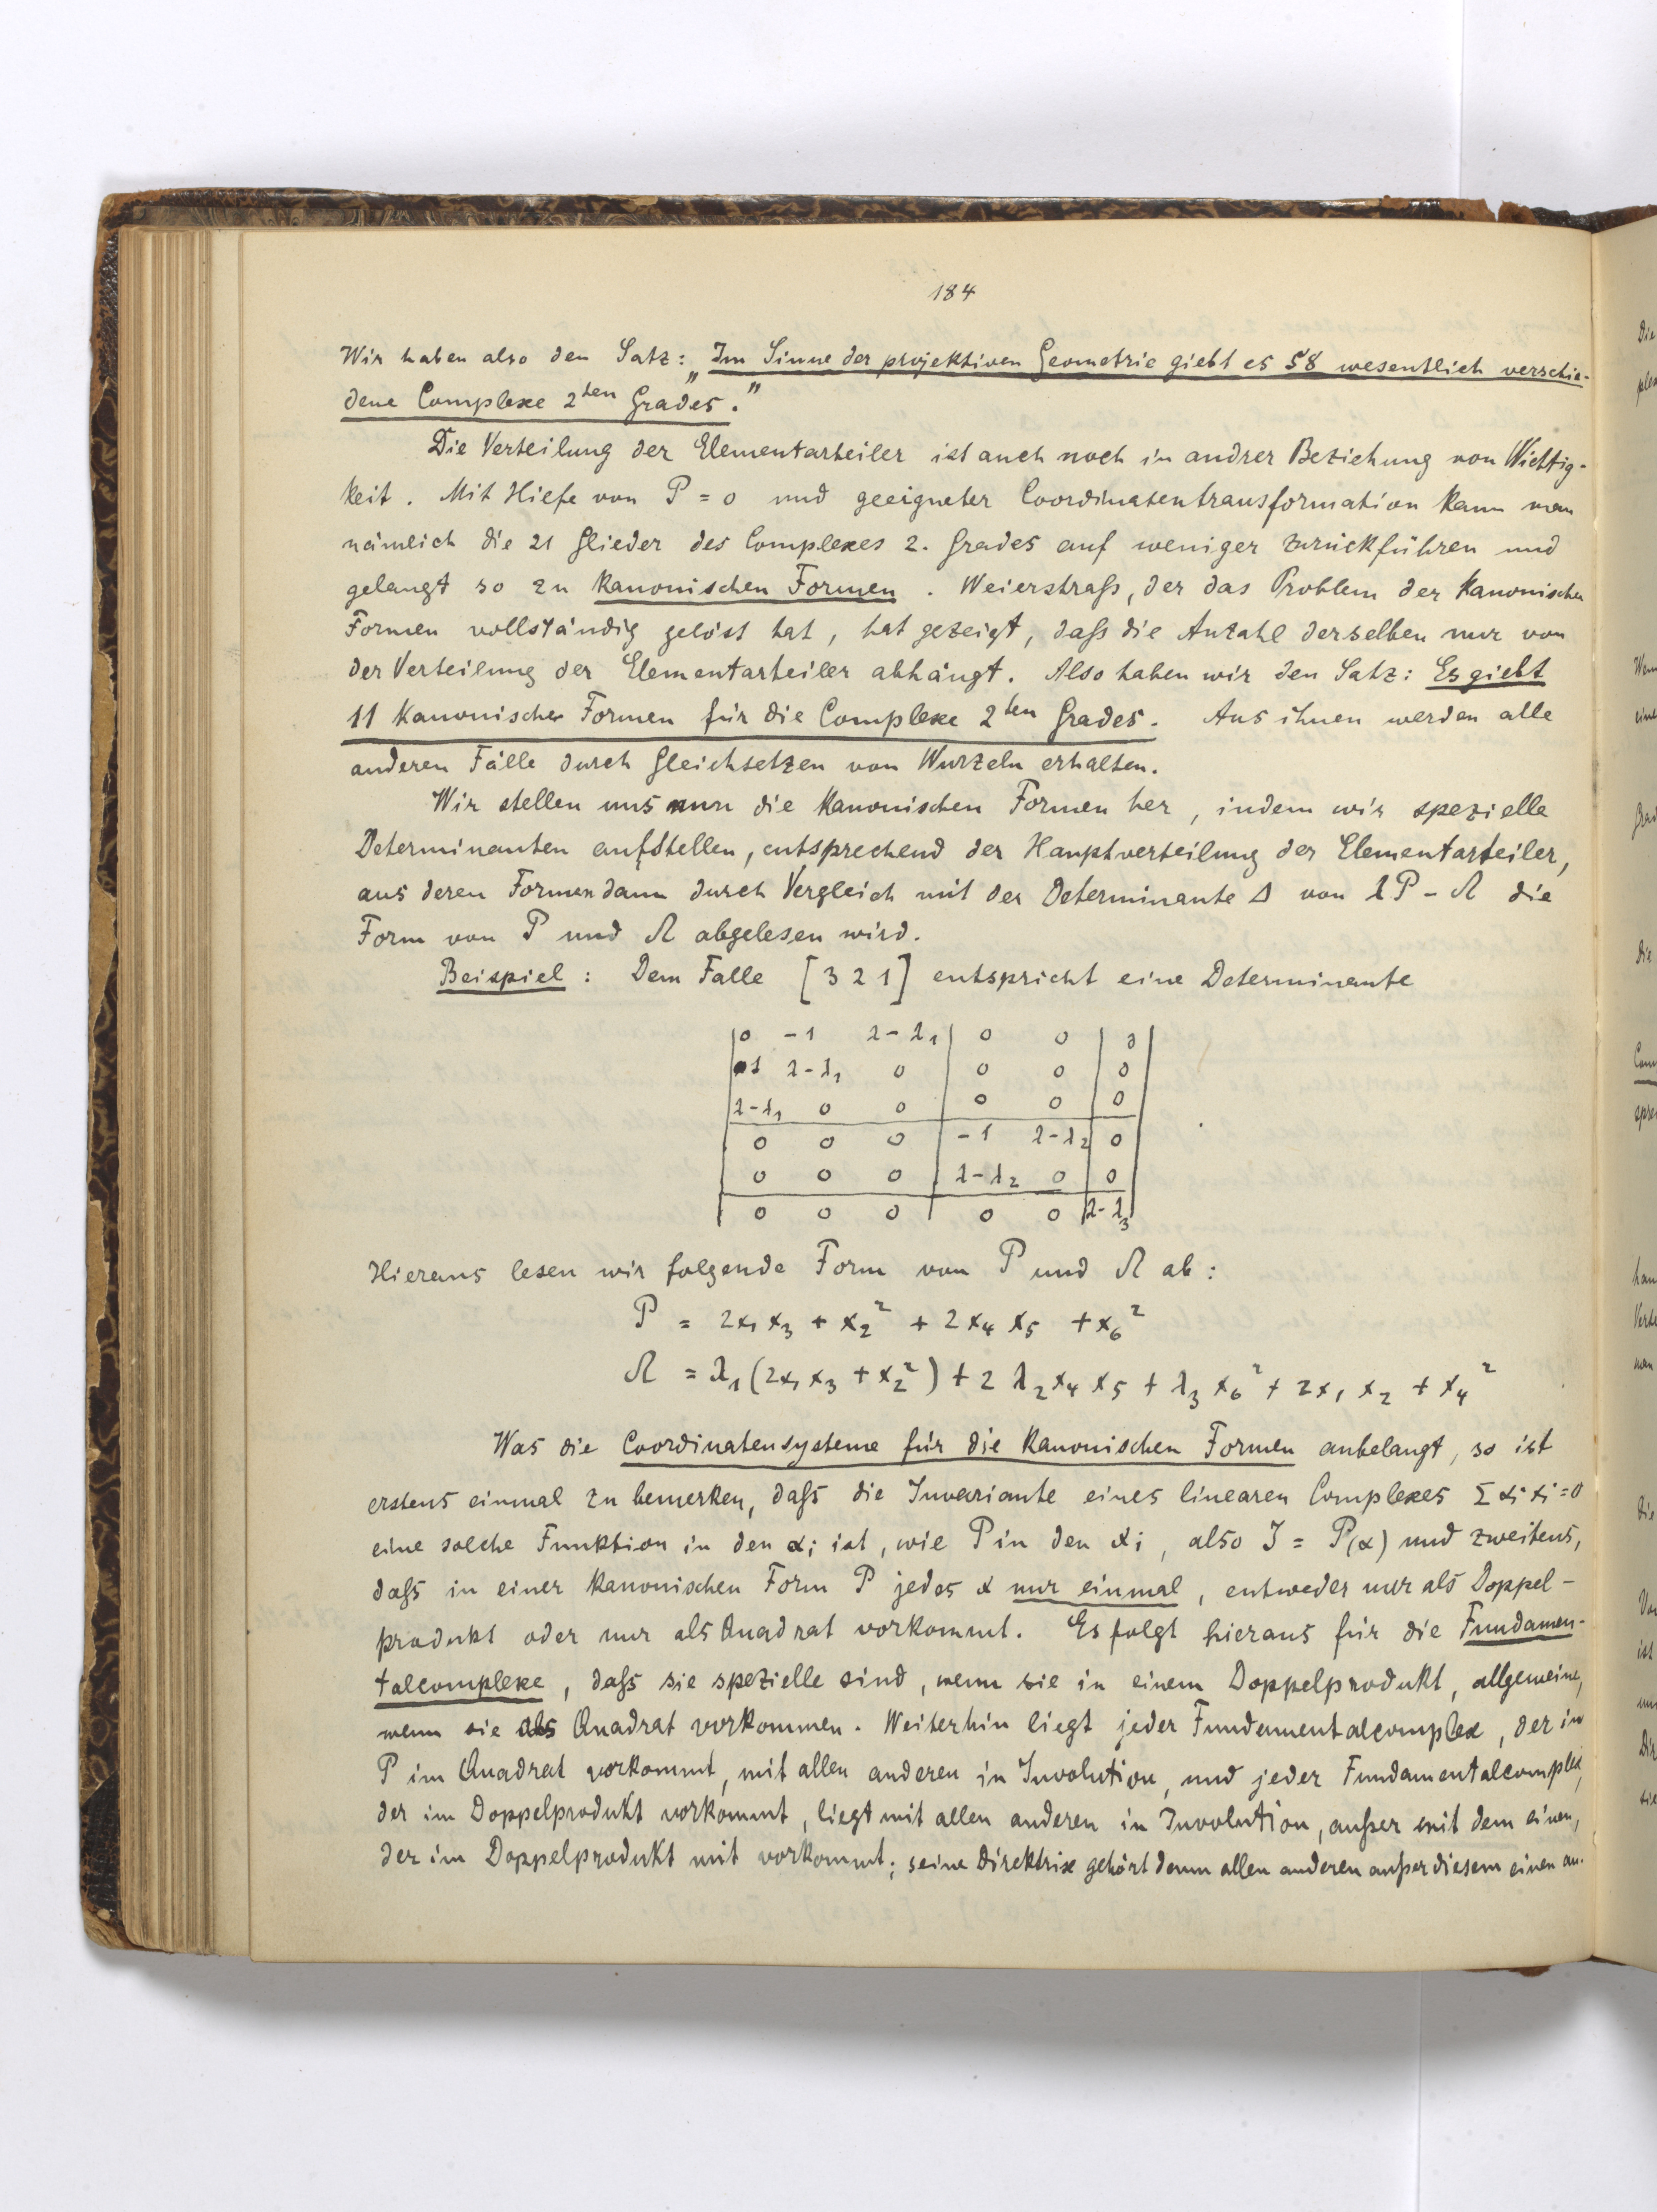 184
Wir haben also den Satz: „Im Sinne der projektiven Geometrie giebt es 58 wesentlich verschie-
dene Complexe 2ten Grades."
Die Verteilung der Elementarteiler ist auch noch in andrer Beziehung von Wichtig-
keit. Mit Hielfe von P = 0 und geeigneter Coordinatentransformation kann man
nämlich die 21 Glieder des Complexes 2. Grades auf weniger zurückführen und
gelangt so zu kanonischen Formen. Weierstraß, der das Problem der kanonischen
Formen vollständig gelöst hat, hat gezeigt, daß die Anzahl derselben nur von
der Verteilung der Elementarteiler abhängt. Also haben wir den Satz: Es giebt
11 kanonische Formen für die Complexe 2ten Grades. Aus ihnen werden alle
anderen Fälle durch Gleichsetzen von Wurzeln erhalten.
Wir stellen uns nun die kanonischen Formen her, indem wir spezielle
Determinanten aufstellen, entsprechend der Hauptverteilung der Elementarteiler,
aus deren Formen dann durch Vergleich mit der Determinante Δ von λP - Ω die
Form von P und Ω abgelesen wird.
Beispiel: Dem Falle [3 2 1] entspricht eine Determinante
0 -1 λ-λ₁ 0 0 0
-1 λ-λ₁ 0 0 0 0
λ-λ₁ 0 0 0 0 0
0 0 0 -1 λ-λ₂ 0
0 0 0 λ-λ₂ 0 0
0 0 0 0 0 λ-λ₃
Hieraus lesen wir folgende Form von P und Ω ab:
P = 2x₁x₃ + x₂² + 2x₄x₅ + x₆²
Ω = λ₁(2x₁x₃ + x₂²) + 2λ₂x₄x₅ + λ₃x₆² + 2x₁x₂ + x₄²
Was die Coordinatensysteme für die kanonischen Formen anbelangt, so ist
erstens einmal zu bemerken, daß die Invariante eines linearen Complexes Σαᵢxᵢ=0
eine solche Funktion in den αᵢ ist, wie P in den xᵢ, also J = P(α) und zweitens,
daß in einer kanonischen Form P jedes x nur einmal, entweder nur als Doppel-
produkt oder nur als Quadrat vorkommt. Es folgt hieraus für die Fundamen-
talcomplexe, daß sie spezielle sind, wenn sie in einem Doppelprodukt, allgemeine,
wenn sie als Quadrat vorkommen. Weiterhin liegt jeder Fundamentalcomplex, der in
P im Quadrat vorkommt, mit allen anderen in Involution, und jeder Fundamentalcomplex,
der im Doppelprodukt vorkommt, liegt mit allen anderen in Involution, außer mit dem einen,
der im Doppelprodukt mit vorkommt; seine Direktrix gehört denn allen anderen außer diesem einen an.